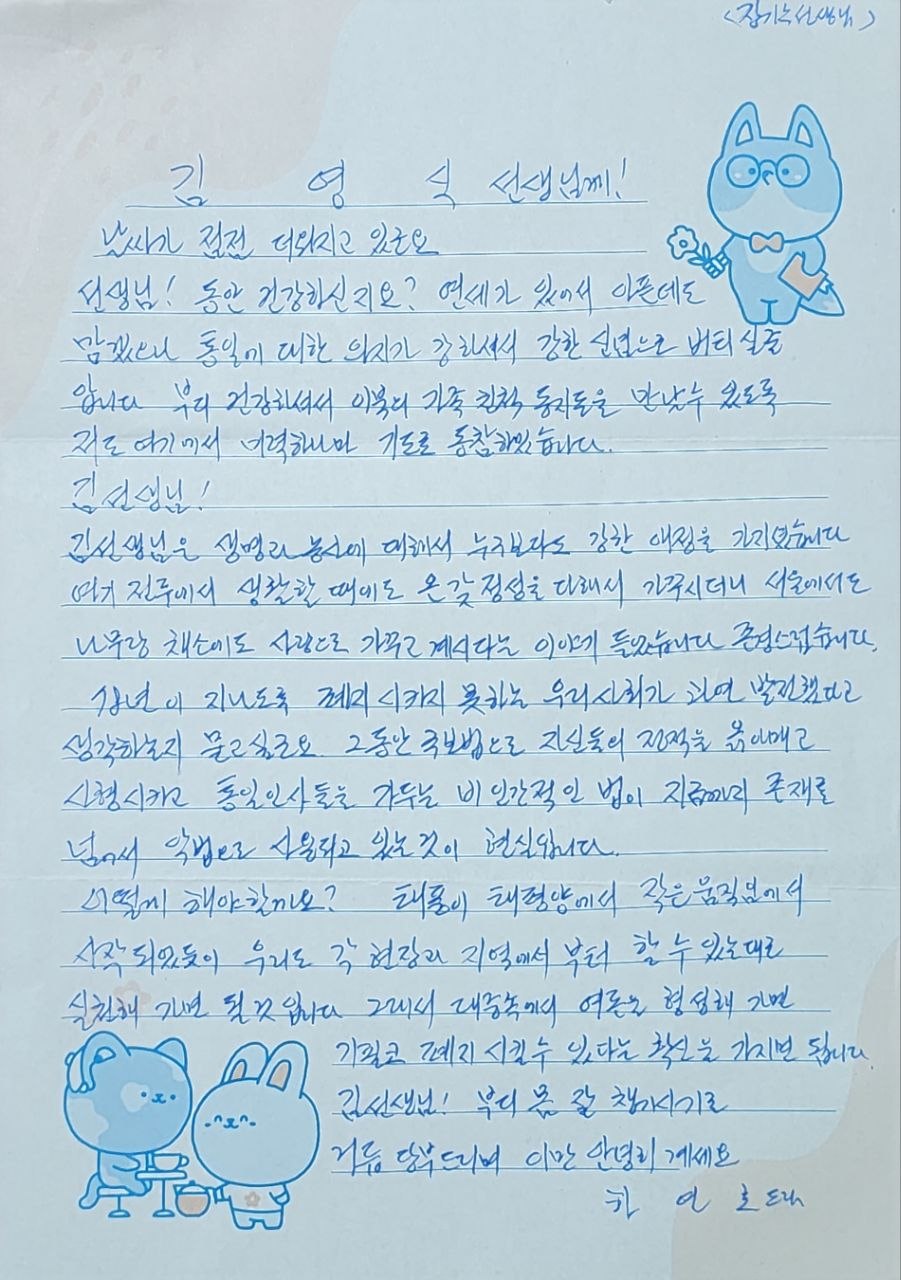 <장기수선생님>
김 영 식 선생님께!
날씨가 점점 더워지고 있군요
선생님! 동안 건강하신지요? 연세가 있어서 아픈데도
많겠으나 통일에 대한 의지가 강하셔서 강한 신념으로 버티실줄
압니다 부디 건강하셔서 이북의 가족 친척 동지들을 만날수 있도록
저도 여기에서 미력하나마 기도로 동참하겠습니다.
김선생님!
김선생님은 생명과 농사에 대해서 누구보다도 강한 애정을 가지셨습니다
여기 전주에서 생활할 때에도 온갖 정성을 다해서 가꾸시더니 서울에서도
나무랑 채소에도 사랑으로 가꾸고 계시다는 이야기 들었습니다 존경스럽습니다.
78년이 지나도록 폐지시키지 못하는 우리사회가 과연 발전했다고
생각하는지 묻고싶군요 그동안 국보법으로 자신들의 정적을 옭아매고
사형시키고 통일인사들을 가두는 비인간적인 법이 지금까지 존재로
넘어서 악법으로 사용되고 있는것이 현실입니다.
어떻게 해야할까요? 태풍이 태평양에서 작은움직임에서
시작되었듯이 우리도 각 현장과 지역에서부터 할수있는대로
실천해 가면 될것입니다 그래서 대중속에서 여론을 형성해 가면
기필코 폐지시킬수 있다는 확신을 가지면 됩니다
김선생님! 부디 몸 잘 챙기시기로
거듭 당부드리며 이만 안녕히 계세요
한 연 호 드림